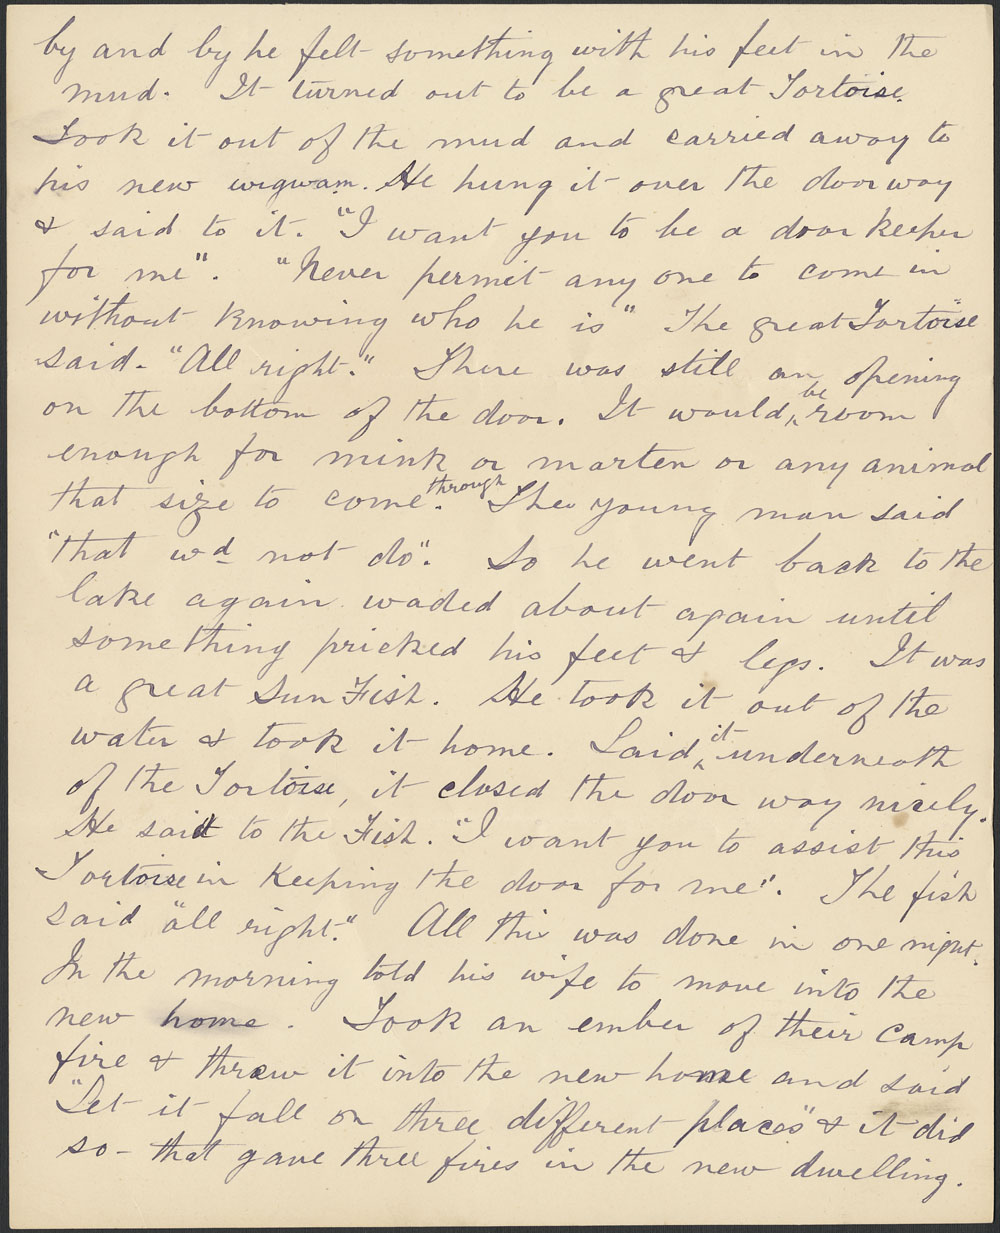 by and by he felt something with his feet in the
mud. It turned out to be a great Tortoise.
Took it out of the mud and carried away to
his new wigwam. He hung it over the doorway
& said to it. "I want you to be a door keeper
for me". "Never permit any one to come in
without knowing who he is" The great Tortoise
said. "All right." There was still an opening
on the bottom of the door. It would be room
enough for mink or marten or any animal
that size to come through. The young man said
"that wd not do". So he went back to the
lake again waded about again until
something pricked his feet & legs. It was
a great Sun Fish. He took it out of the
water & took it home. Laid it underneath
of the Tortoise, it closed the door way nicely.
He said to the Fish. "I want you to assist this
Tortoise in keeping the door for me". The fish
said "all right." All this was done in one night.
In the morning told his wife to move into the
new home. Took an ember of their camp
fire & threw it into the new home and said
"Let it fall on three different places" & it did
so - that gave three fires in the new dwelling.